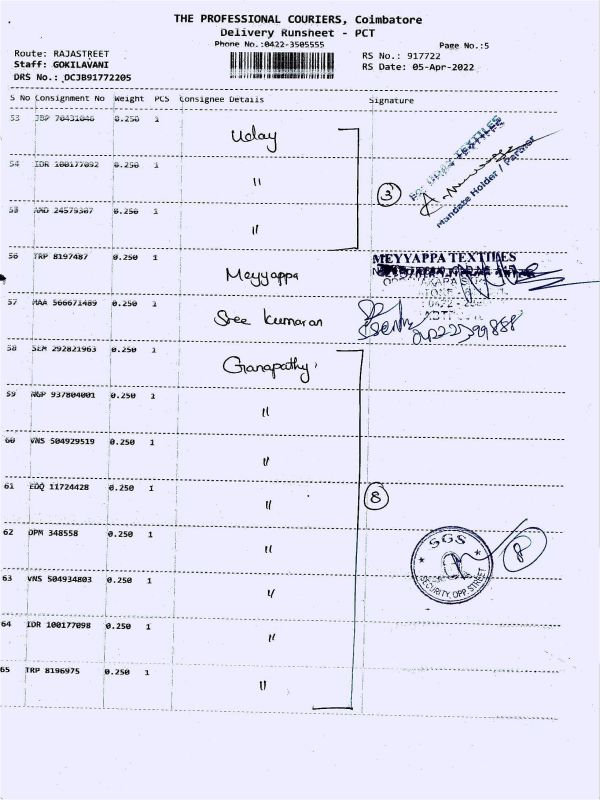 THE PROFESSIONAL COURIERS, Coimbatore
Delivery Runsheet - PCT
Phone No.:0422-3505555 Page No.:5
Route: RAJASTREET RS No.: 917722
Staff: GOKILAVANI RS Date: 05-Apr-2022
DRS No.: DCJB91772205
S No Consignment No Weight PCS Consignee Details Signature
53 JBP 70431046 0.250 1 Uday
54 IDR 100177092 0.250 1 〃
3
55 AMD 24579307 0.250 1 〃
TEXTILES
Mandate Holder / Partner
56 TRP 8197487 0.250 1 Meyyappa
MEYYAPPA TEXTILES
57 MAA 566671489 0.250 1 Sree Kumaran
58 SEM 292821963 0.250 1 Ganapathy
59 NGP 937804001 0.250 1 〃
60 VNS 504929519 0.250 1 〃
61 EDQ 11724428 0.250 1 〃
8
62 DPM 348558 0.250 1 〃
SGS
SECURITY, OPP. STREET
8
63 VNS 504934803 0.250 1 〃
64 IDR 100177098 0.250 1 〃
65 TRP 8196975 0.250 1 〃